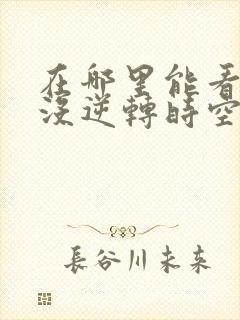 在哪里能看
没逆轉時空
長谷川未来